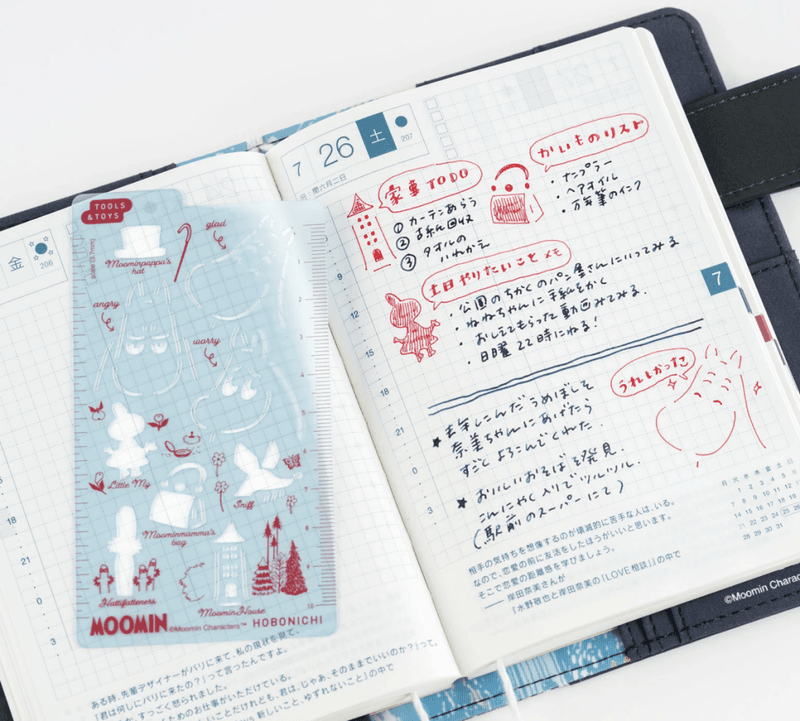 金
206
TOOLS
& TOYS
glad
scale (3.7mm)
Moominpappa's
hat
angry
worry
Little My
Sniff
Moominmamma's
bag
Hattifatteners
MoominHouse
MOOMIN ©Moomin Characters™ HOBONICHI
ある時、先輩デザイナーがパリに来て、私の現状を見て、
すっごく怒られました。
「君は何しにパリに来たの?」って言ったんですよ。
ためのお仕事がいただけている。
「君は、じゃあ、そのままでいいのか?」って。
新しいこと、ゆずれないこと』の中で
7 26 土
207
旧 閏六月二日
家事TODO
① カーテンあらう
② 古紙回収
③ タオルの
いれかえ
かいものリスト
・ナンプラー
・ヘアオイル
・万年筆のインク
土日やりたいことメモ
・公園のちかくのパン屋さんにいってみる
・ねねちゃんに手紙をかく
・おしえてもらった動画みてみる。
・日曜22時にねる!
9
12
15
18
21
0
3
7
うれしかった
★ 去年しこんだうめぼしを
奈美ちゃんにあげたら
すごくよろこんでくれた。
★ おいしいおそばを発見。
こんにゃく入りでツルツル。
(駅前のスーパーにて)
月 火 水 木 金 土 日
1 2 3 4 5 6
7 8 9 10 11 12 13
14 15 16 17 18 19 20
21 22 23 24 25 26 27
28 29 30 31
相手の気持ちを想像するのが壊滅的に苦手な人は、いる。
なので、恋愛の前に友活をしたほうがいいと思います。
そこで恋愛の距離感を学びましょう。
── 岸田奈美さんが
『水野敬也と岸田奈美の「LOVE相談」』の中で
©Moomin Chara